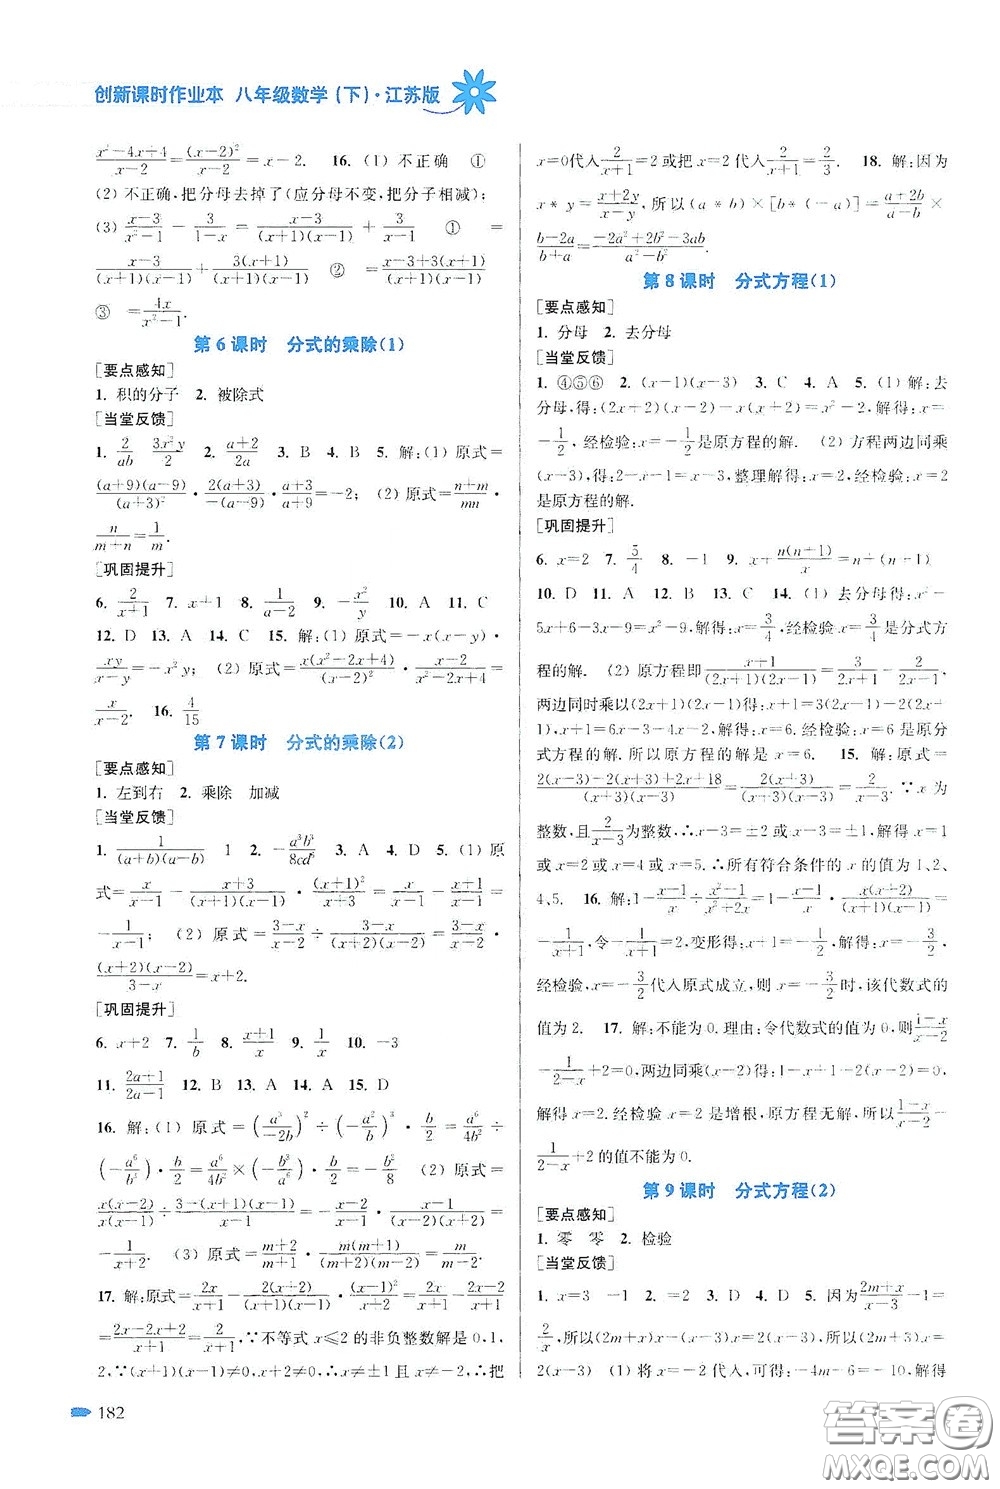 创新课时作业本 八年级数学(下)·江苏版
\frac{x²-4x+4}{x-2}=\frac{(x-2)²}{x-2}=x-2. 16. (1) 不正确 ①
(2) 不正确,把分母去掉了(应分母不变,把分子相减);
(3) \frac{x-3}{x²-1}-\frac{3}{1-x}=\frac{x-3}{(x+1)(x-1)}+\frac{3}{x-1} ① =
\frac{x-3}{(x+1)(x-1)}+\frac{3(x+1)}{(x+1)(x-1)} ② =\frac{x-3+3(x+1)}{(x+1)(x-1)}
③ =\frac{4x}{x²-1}.
第 6 课时 分式的乘除(1)
[要点感知]
1. 积的分子 2. 被除式
[当堂反馈]
1. \frac{2}{ab} \frac{3x²y}{2} 2. \frac{a+2}{2a} 3. B 4. B 5. 解:(1) 原式=
\frac{(a+9)(a-9)}{(a+3)²}·\frac{2(a+3)}{-(a-9)}·\frac{a+3}{a+9}=-2; (2) 原式=\frac{n+m}{mn}·
\frac{n}{m+n}=\frac{1}{m}.
[巩固提升]
6. \frac{2}{x+1} 7. x+1 8. \frac{1}{a-2} 9. -\frac{x²}{y} 10. A 11. C
12. D 13. A 14. C 15. 解:(1) 原式=-x(x-y)·
\frac{xy}{x-y}=-x²y; (2) 原式=\frac{x(x²-2x+4)}{(x-2)²}·\frac{x-2}{x²-2x+4}=
\frac{x}{x-2}. 16. \frac{4}{15}
第 7 课时 分式的乘除(2)
[要点感知]
1. 左到右 2. 乘除 加减
[当堂反馈]
1. \frac{1}{(a+b)(a-b)} 1 2. 3. A 4. D 5. (1) 原
式=\frac{x}{x-1}-\frac{x+3}{(x+1)(x-1)}·\frac{(x+1)²}{x+3}=\frac{x}{x-1}-\frac{x+1}{x-1}=
-\frac{1}{x-1}; (2) 原式=\frac{3-x}{x-2}÷\frac{5-(x+2)(x-2)}{x-2}=\frac{3-x}{x-2}·
\frac{(x+2)(x-2)}{3-x}=x+2.
[巩固提升]
6. x+2 7. \frac{1}{b} 8. \frac{x+1}{x} 9. \frac{1}{x} 10. -3
11. \frac{2a+1}{2a-1} 12. B 13. A 14. B 15. D
16. 解:(1) 原式=(\frac{a³}{-2b})²÷(-\frac{a²}{b})³·\frac{b}{2}=\frac{a⁶}{4b²}÷
(-\frac{a⁶}{b³})·\frac{b}{2}=\frac{a⁶}{4b²}×(-\frac{b³}{a⁶})·\frac{b}{2}=-\frac{b²}{8} (2) 原式=
\frac{x(x-2)}{x(x-1)}÷\frac{3-(x+1)(x-1)}{x-1}=\frac{x-2}{x-1}·\frac{x-1}{-(x+2)(x-2)}=
-\frac{1}{x+2}. (3) 原式=\frac{m+2}{m+1}·\frac{m(m+1)}{(m+2)(m-2)}=\frac{m}{m-2}.
17. 解:原式=\frac{2x}{x+1}-\frac{2(x+2)}{(x+1)(x-1)}·\frac{(x-1)²}{x+2}=\frac{2x}{x+1}-\frac{2x-2}{x+1}
=\frac{2x-2x+2}{x+1}=\frac{2}{x+1},∵不等式 x≤2 的非负整数解是 0,1,
2,∵(x+1)(x-1)≠0,x+2≠0,∴x≠±1 且 x≠-2,∴把
x=0代入\frac{2}{x+1}=2 或把 x=2 代入\frac{2}{x+1}=\frac{2}{3}. 18. 解:因为
x*y=\frac{x+2y}{x-y},所以(a*b)×[b*(-a)]=\frac{a+2b}{a-b}×
\frac{b-2a}{b+a}=\frac{-2a²+2b²-3ab}{a²-b²}.
第 8 课时 分式方程(1)
[要点感知]
1. 分母 2. 去分母
[当堂反馈]
1. ④⑤⑥ 2. (x-1)(x-3) 3. C 4. A 5. (1) 解:去
分母,得:(2x+2)(x-2)-x(x+2)=x²-2,解得:x=
-\frac{1}{2},经检验:x=-\frac{1}{2}是原方程的解. (2) 方程两边同乘
(x-3),得:2-x-1=x-3,整理解得:x=2,经检验,x=2
是原方程的解.
[巩固提升]
6. x=2 7. 8. -1 9. x+\frac{n(n+1)}{x}=n+(n+1)
10. D 11. A 12. B 13. C 14. (1) 去分母得:x²-
5x+6-3x-9=x²-9,解得:x=\frac{3}{4},经检验x=\frac{3}{4}是分式方
程的解. (2) 原方程即\frac{x+1}{(2x+1)(2x-1)}=\frac{3}{2x+1}-\frac{2}{2x-1},
两边同时乘以(2x+1)(2x-1)得:x+1=3(2x-1)-2(2x+
1),x+1=6x-3-4x-2,解得:x=6.经检验:x=6是原分
式方程的解.所以原方程的解是 x=6. 15. 解:原式=
\frac{2(x-3)-2(x+3)+2x+18}{(x+3)(x-3)}=\frac{2(x+3)}{(x+3)(x-3)}=\frac{2}{x-3}.∵x 为
整数,且\frac{2}{x-3}为整数,∴x-3=±2 或 x-3=±1,解得 x=1
或 x=2 或 x=4 或 x=5.∴所有符合条件的 x 的值为 1、2、
4、5. 16. 解:1-\frac{x-1}{x}÷\frac{x²-1}{x²+2x}=1-\frac{x-1}{x}·\frac{x(x+2)}{(x+1)(x-1)}=
-\frac{1}{x+1},令-\frac{1}{x+1}=2,变形得:x+1=-\frac{1}{2},解得:x=-\frac{3}{2},
经检验,x=-\frac{3}{2}代入原式成立,则 x=-\frac{3}{2}时,该代数式的
值为 2. 17. 解:不能为 0.理由:令代数式的值为 0,则\frac{1-x}{x-2}-
\frac{1}{2-x}+2=0,方程两边同乘(x-2)得:1-x+1+2(x-2)=0,
解得 x=2.经检验 x=2 是增根,原方程无解,所以\frac{1-x}{x-2}-
\frac{1}{2-x}+2 的值不能为 0.
第 9 课时 分式方程(2)
[要点感知]
1. 零 零 2. 检验
[当堂反馈]
1. x=3 -1 2. =2 3. D 4. D 5. 因为\frac{2m+x}{x-3}-1=
\frac{2}{x},所以(2m+x)x-x(x-3)=2(x-3),所以(2m+3)x=
2(x-3) (1) 将 x=2 代人,可得:-4m-6=-10,解得
182
答案圈
MXQE.COM